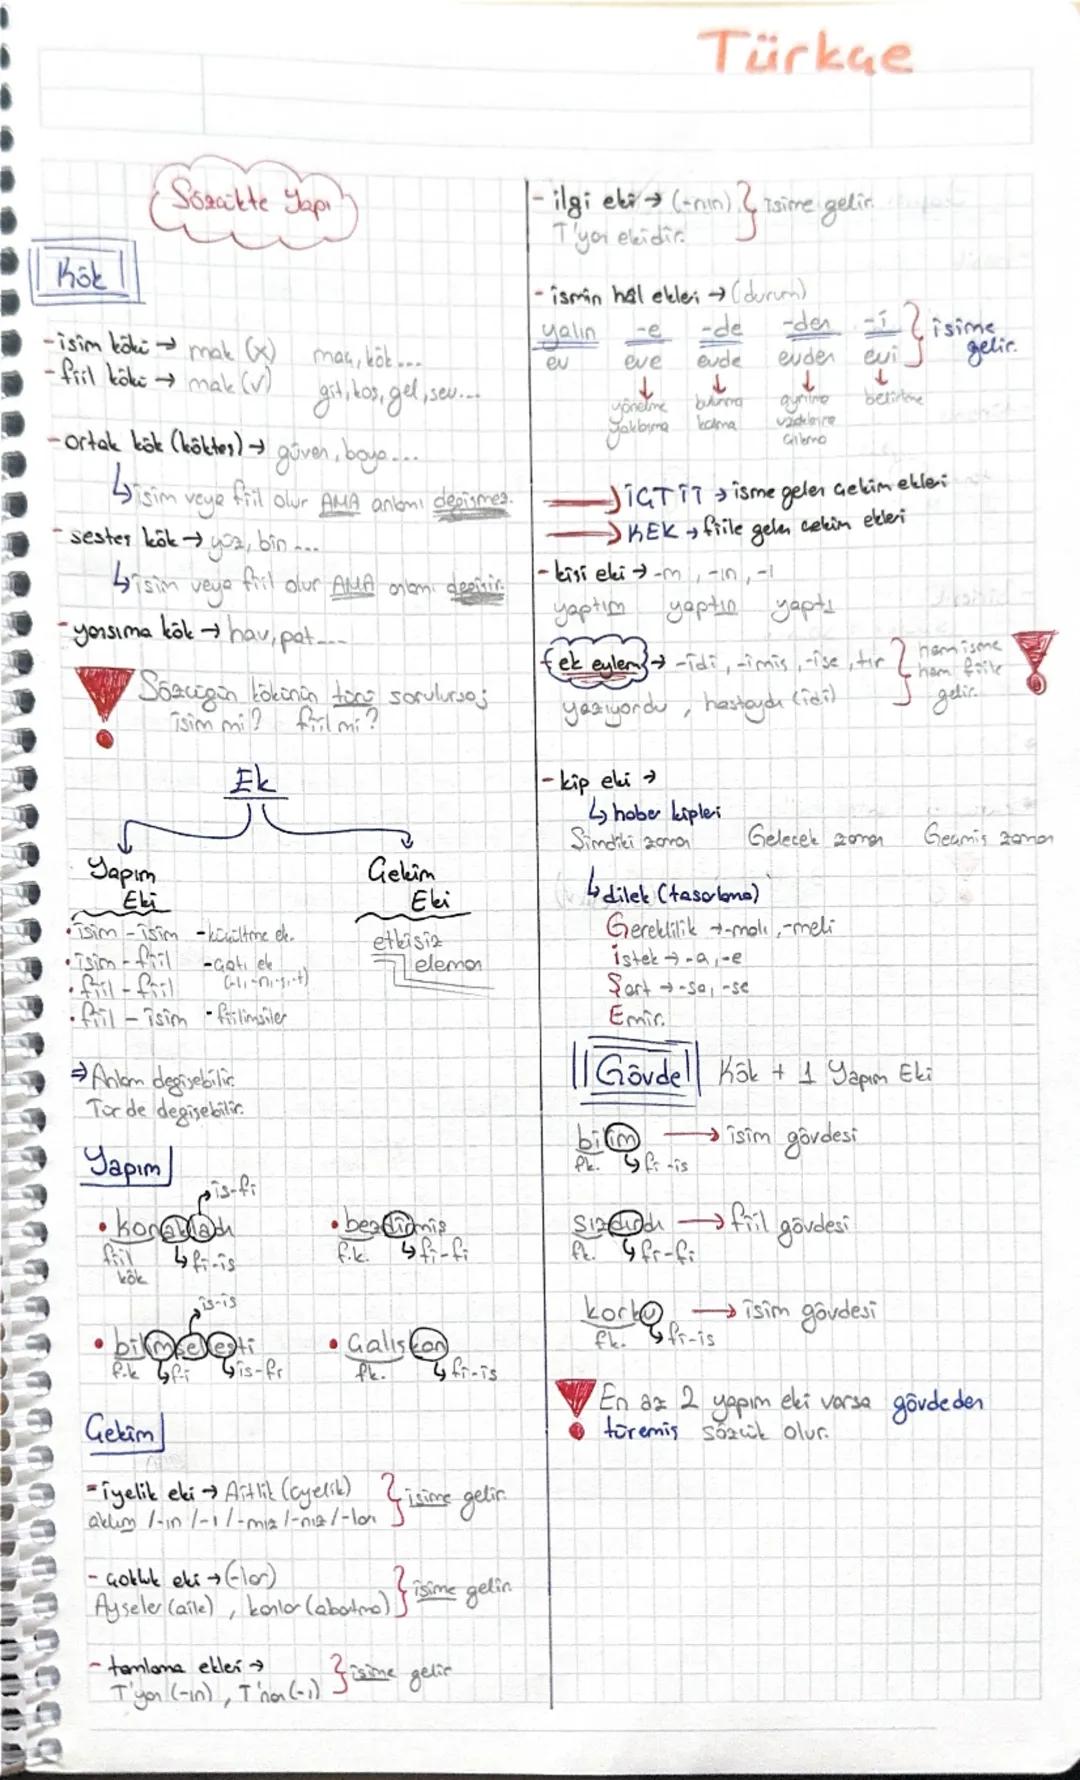 Türkçe
Sözcükte Yapı
Kök
-isim kökü → mak (x) maç, kök...
-fiil kökü → mak (v) git, koş, gel, sev...
-ortak kök (kökteş) → güven, boya...
↳ isim veya fiil olur AMA anlamı değişmez.
- sesteş kök → yüz, bin ...
↳ isim veya fiil olur AMA anlamı değişir.
- yansıma kök → hav, pat....
Sözcüğün kökünün türü sorulursa;
isim mi? fiil mi?
Ek
Yapım
Eki
• isim - isim - küçültme ek.
• isim - fiil - çatı ek
(-l, -n, -ş, -t)
• fiil - fiil
• fiil - isim - fiilimsiler
Çekim
Eki
etkisiz
eleman
⇒ Anlam değişebilir.
Tür de değişebilir.
Yapım
is-fi
• konakladı
fiil
kök
↳ fi-is
• bezdirmiş
f.k. ↳ fi-fi
is-is
• bilimselleşti
f.k ↳ fi-i ↳ is-fi
• Çalışkan
fk. ↳ fi-is
Çekim
- iyelik eki → Aitlik (iyelik) } isime gelir.
aklım /-ın /-ı /-mız /-nız /-ları
- çokluk eki → (-lar)
Ayşeler (aile), karlar (abartma) } isime gelir.
- tamlama ekleri →
T'yan (-ın), T'nan (-ı) } isime gelir
- ilgi eki → (-nın) } isime gelir.
T'yan ekidir.
- ismin hâl ekleri → (durum)
yalın -e -de -den -i } isime
gelir.
ev eve evde evden evi
yönelme bulunma ayrılma belirtme
yaklaşma kalma uzaklaşma
çıkma
→ İÇTİT → isme gelen çekim ekleri
→ KEK → fiile gelen çekim ekleri
- kişi eki → -m, -ın, -ı
yaptım yaptın yaptı
ek eylem → -idi, -imiş, -ise, tır } hem isme
hem fiile
gelir.
yazıyordu, hastaydı (idi)
- kip eki →
↳ haber kipleri
Şimdiki zaman Gelecek zaman Geçmiş zaman
↳ dilek (tasarlama)
Gereklilik → -malı, -meli
İstek → -a, -e
Şart → -sa, -se
Emir.
Gövde Kök + 1 Yapım Eki
bilim → isim gövdesi
fk. ↳ fi-is
sızdırdı → fiil gövdesi
fk. ↳ fi-fi
korku → isim gövdesi
fk. ↳ fi-is
En az 2 yapım eki varsa gövdeden
türemiş sözcük olur.